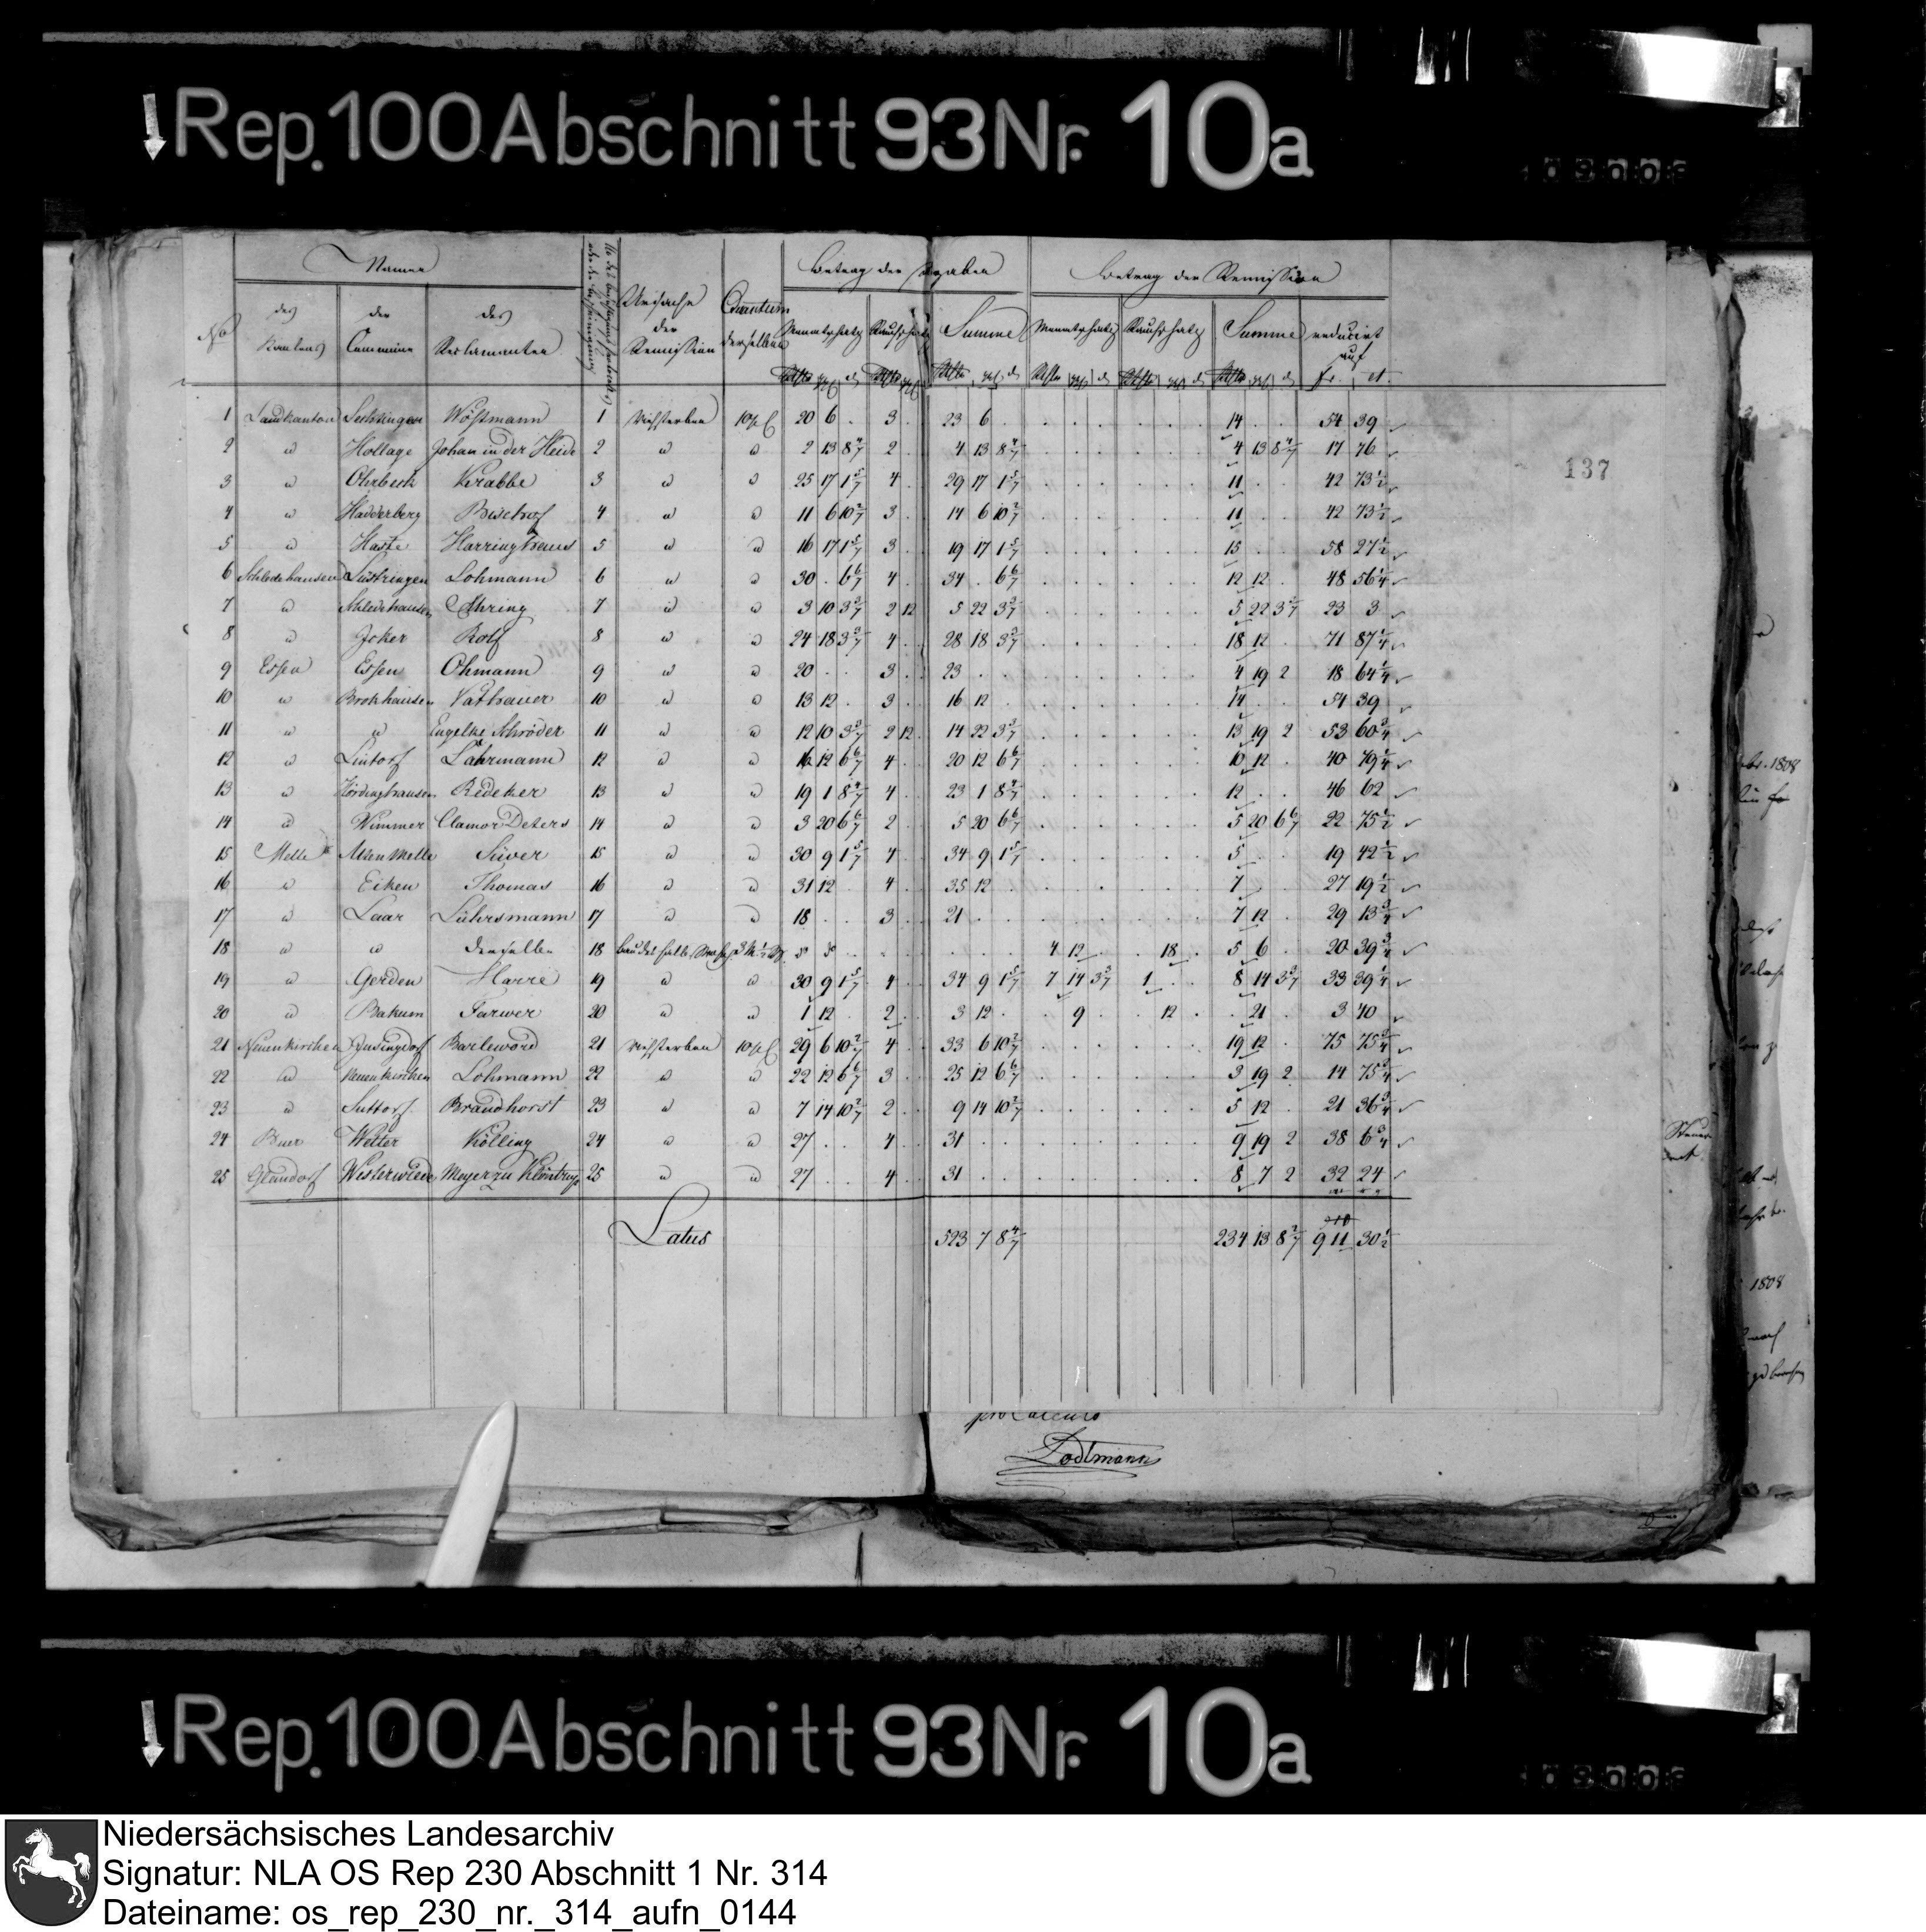 Rep. 100 Abschnitt 93 Nr. 10a
Namen
Betrag der Abgaben
Betrag der Remission
No
des Kantons
der Commüne
des Reclamanten
Ursache der Remission
Quantum derselben
Monatschatz
Rauchschatz
Summe
Monatschatz
Rauchschatz
Summe
reducirt auf
fr. ct.
137
1 Landkanton Wöstmann 1 Viehsterben 20 6 . 3 . 23 6 . 14 . . 54 39
2 " Hollage Johan in der Heide 2 " " 2 13 8 4/7 2 . 4 13 8 4/7 4 13 8 4/7 17 76
3 " Ohrbeck Krabbe 3 " " 25 17 1 5/7 4 . 29 17 1 5/7 11 . . 42 73 1/2
4 " Hadderberg Bischof 4 " " 11 6 10 2/7 3 . 14 6 10 2/7 11 . . 42 73 1/2
5 " Haste 5 " " 16 17 1 5/7 3 . 19 17 1 5/7 15 . . 58 27 1/2
6 Schledehausen Lüstringen Lohmann 6 " " 30 . 6 6/7 4 . 34 . 6 6/7 12 12 . 48 56 1/4
7 " Schledehausen 7 " " 3 10 3 3/7 2 12 5 22 3 3/7 5 22 3 3/7 23 3
8 " Jeker Rolf 8 " " 24 18 3 3/7 4 . 28 18 3 3/7 18 12 . 71 87 1/4
9 Essen Essen Ohmann 9 " " 20 . . 3 . 23 . . 4 19 2 18 64 1/4
10 " Brokhausen Vatthauer 10 " " 13 12 . 3 . 16 12 . 14 . . 54 39
11 " " Engelke Schröder 11 " " 12 10 3 3/7 2 12 14 22 3 3/7 13 19 2 53 60 3/4
12 " Lintorf Lahrmann 12 " " 16 12 6 6/7 4 . 20 12 6 6/7 10 12 . 40 79 1/4
13 " Hördinghausen Redeker 13 " " 19 1 8 4/7 4 . 23 1 8 4/7 12 . . 46 62
14 " Wimmer Clamor Deters 14 " " 3 20 6 6/7 2 . 5 20 6 6/7 5 20 6 6/7 22 75 1/2
15 Melle Alten Melle Süver 15 " " 30 9 1 5/7 4 . 34 9 1 5/7 5 . . 19 42 1/2
16 " Eiken Thomas 16 " " 31 12 . 4 . 35 12 . 7 . . 27 19 1/2
17 " Laar Lührsmann 17 " " 18 . . 3 . 21 . . 7 12 . 29 13 3/4
18 " " derselbe 18 4 12 . . 18 . 5 6 . 20 39 3/4
19 " Gerden Harre 19 " " 30 9 1 5/7 4 . 34 9 1 5/7 7 14 3 3/7 1 . . 8 14 3 3/7 33 39 1/4
20 " Bakum Farwer 20 " " 1 12 . 2 . 3 12 . . 9 . . 12 . . 21 . 3 40
21 Neuenkirchen Barleword 21 Viehsterben 29 6 10 2/7 4 . 33 6 10 2/7 19 12 . 75 75 3/4
22 " Neuenkirchen Lohmann 22 " " 22 12 6 6/7 3 . 25 12 6 6/7 3 19 2 14 75 3/4
23 " Suttorf Brandhorst 23 " " 7 14 10 2/7 2 . 9 14 10 2/7 5 12 . 21 36 3/4
24 Buer Wetter Kölling 24 " " 27 . . 4 . 31 . . 9 19 2 38 6 3/4
25 Glandorf Westerwiede Meyer zu Klöntrup 25 " " 27 . . 4 . 31 . . 8 7 2 32 24
Latus 523 7 8 4/7 234 13 8 2/7 911 30 1/2
pro Calculo
Lodtmann
1808
1808
Rep. 100 Abschnitt 93 Nr. 10a
Niedersächsisches Landesarchiv
Signatur: NLA OS Rep 230 Abschnitt 1 Nr. 314
Dateiname: os_rep_230_nr._314_aufn_0144